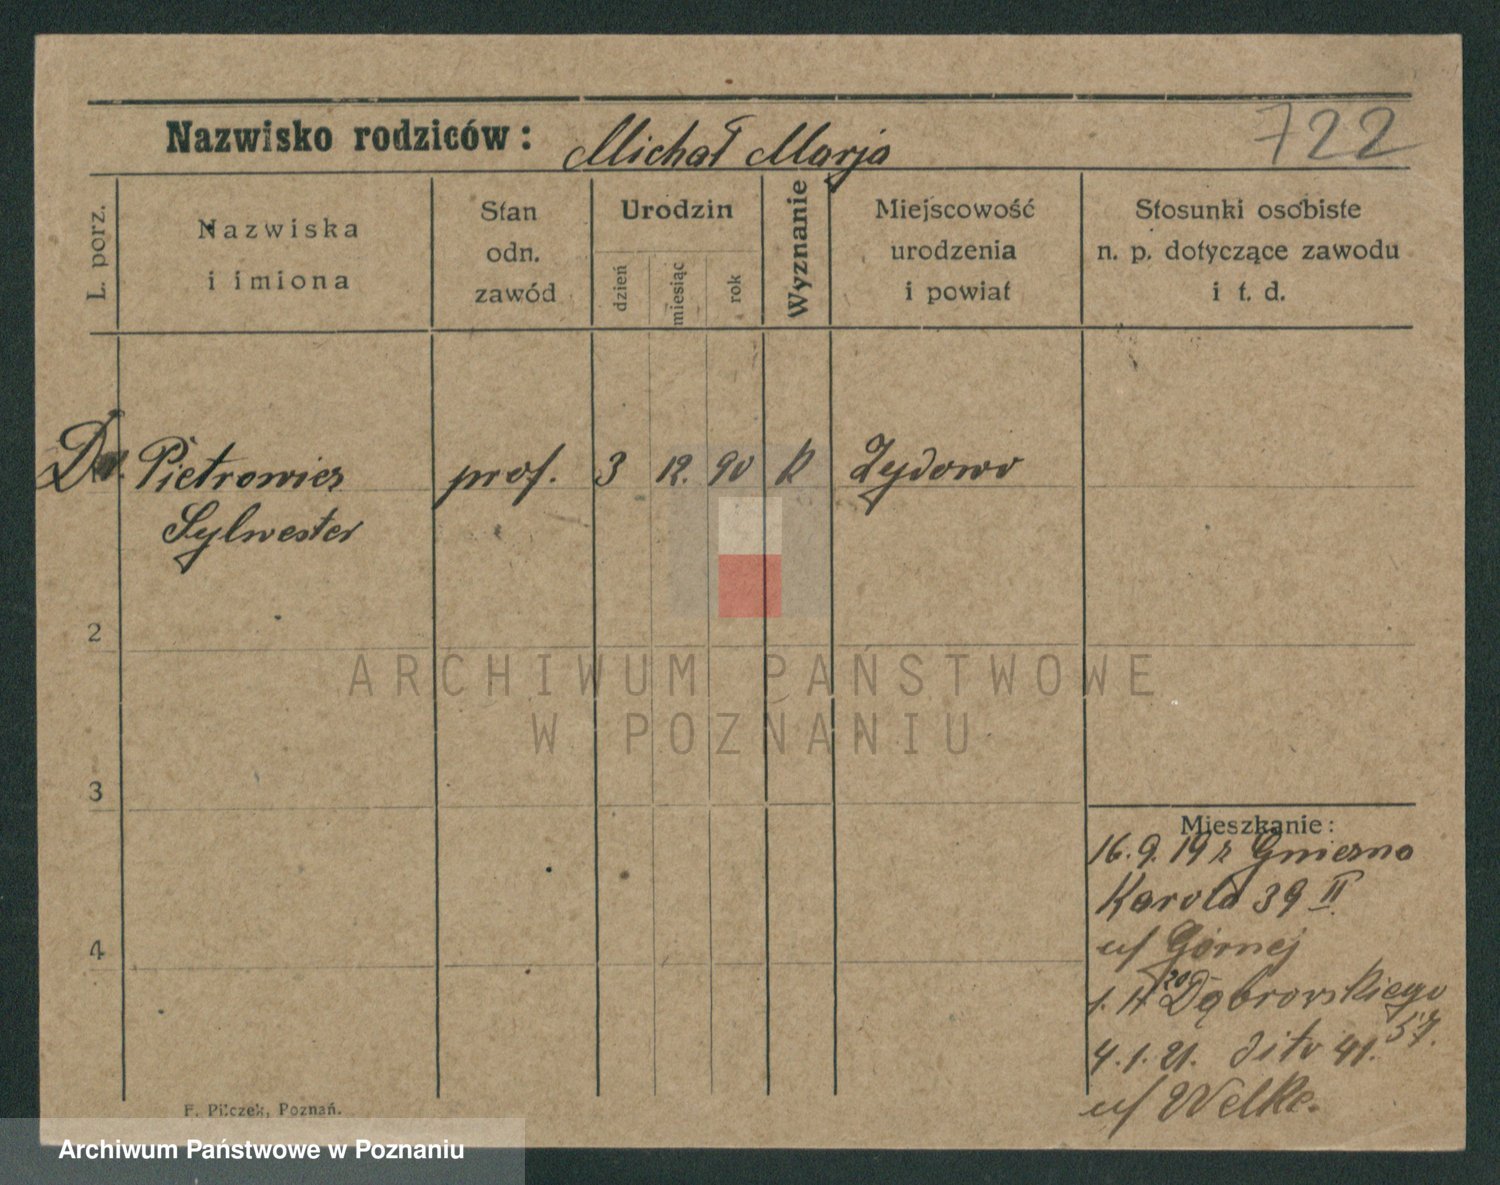 Nazwisko rodziców: Michał Marja 722
L. porz.
Nazwiska
i imiona
Stan
odn.
zawód
Urodzin
dzień
miesiąc
rok
Wyznanie
Miejscowość
urodzenia
i powiat
Stosunki osobiste
n. p. dotyczące zawodu
i t. d.
Dr. Pietrowicz prof. 3 12. 90 k Żydowo
Sylwester
2
3
4
ARCHIWUM PAŃSTWOWE
W POZNANIU
Mieszkanie:
16.9.19 z Gniezno
Karola 39 II
u/ Górnej
1. 11 20 Dąbrowskiego
57.
4.1.21. dito 41.
u/ Welke.
F. Pilczek, Poznań.
Archiwum Państwowe w Poznaniu